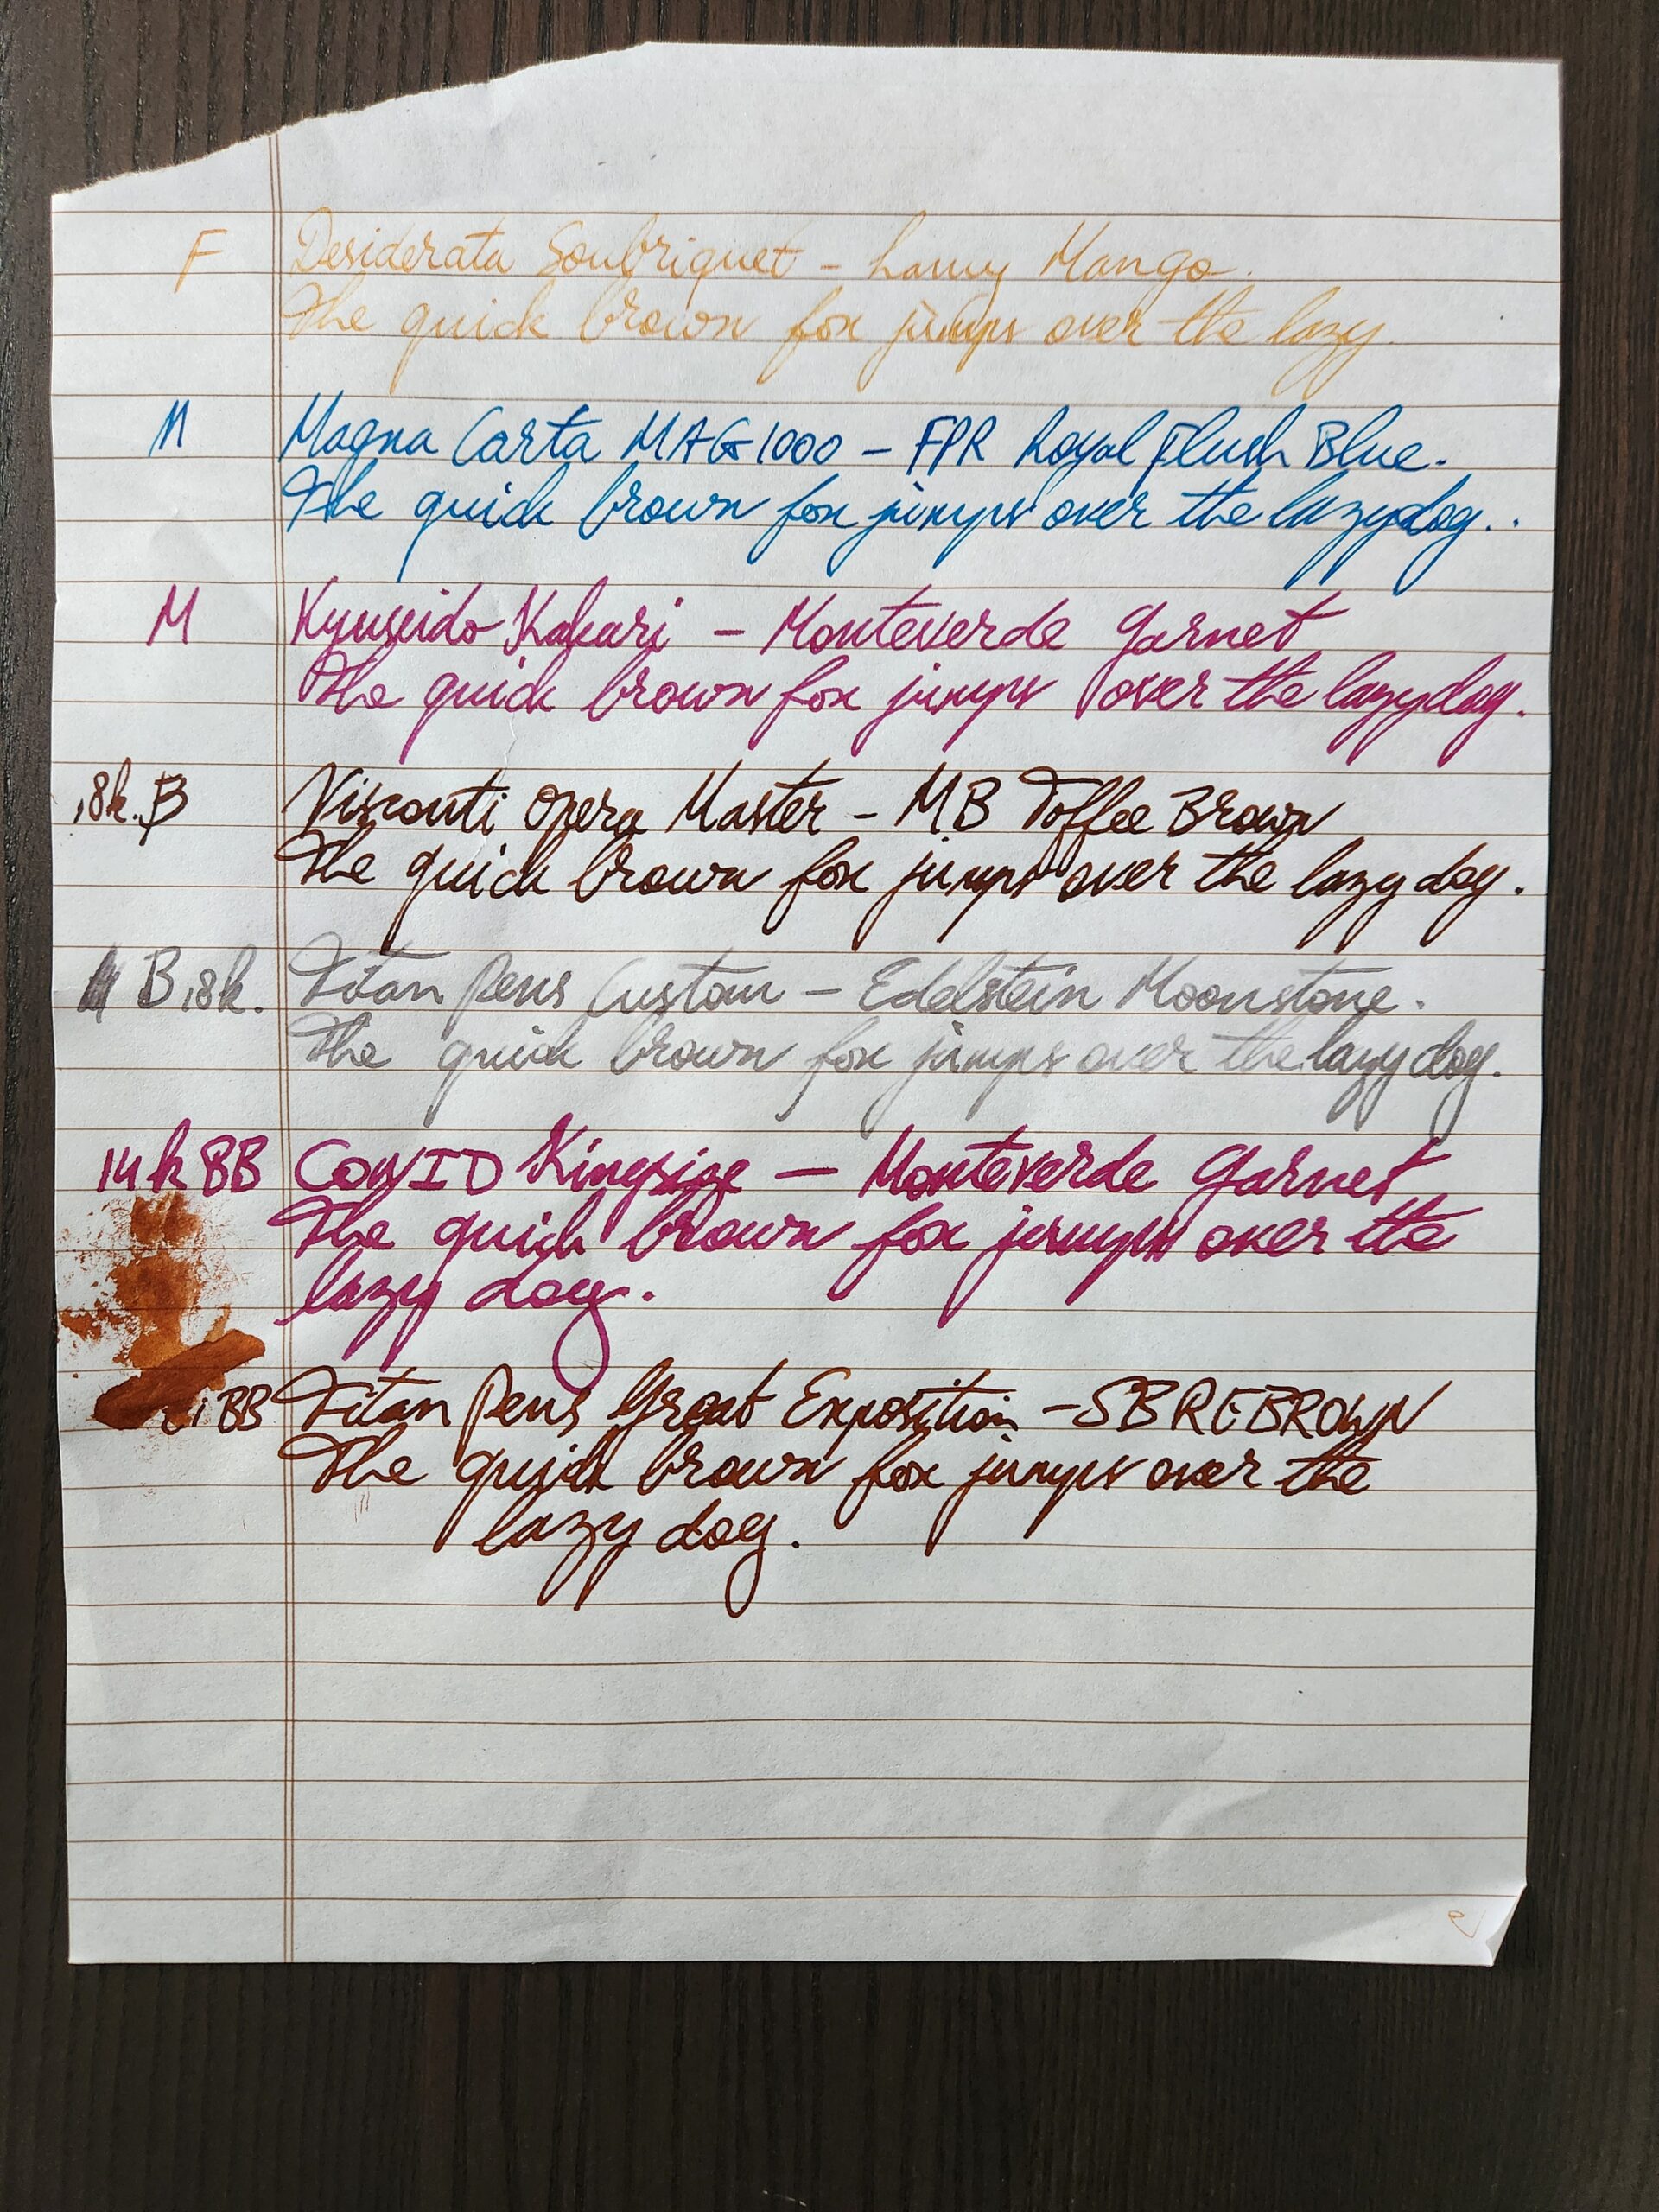 F Desiderata Soubriquet - Lamy Mango.
The quick brown fox jumps over the lazy.
M Magna Carta MAG1000 - FPR Royal Flush Blue.
The quick brown fox jumps over the lazy dog..
M Kyuseido Kakari - Monteverde Garnet
The quick brown fox jumps over the lazy dog.
18k. B Visconti Opera Master - MB Toffee Brown
The quick brown fox jumps over the lazy dog.
B 18k. Titan Pens Custom - Edelstein Moonstone.
The quick brown fox jumps over the lazy dog.
14k BB COWID Kingsize - Monteverde Garnet
The quick brown fox jumps over the
lazy dog.
BB Titan Pens Great Exposition - SBREBROWN
The quick brown fox jumps over the
lazy dog.